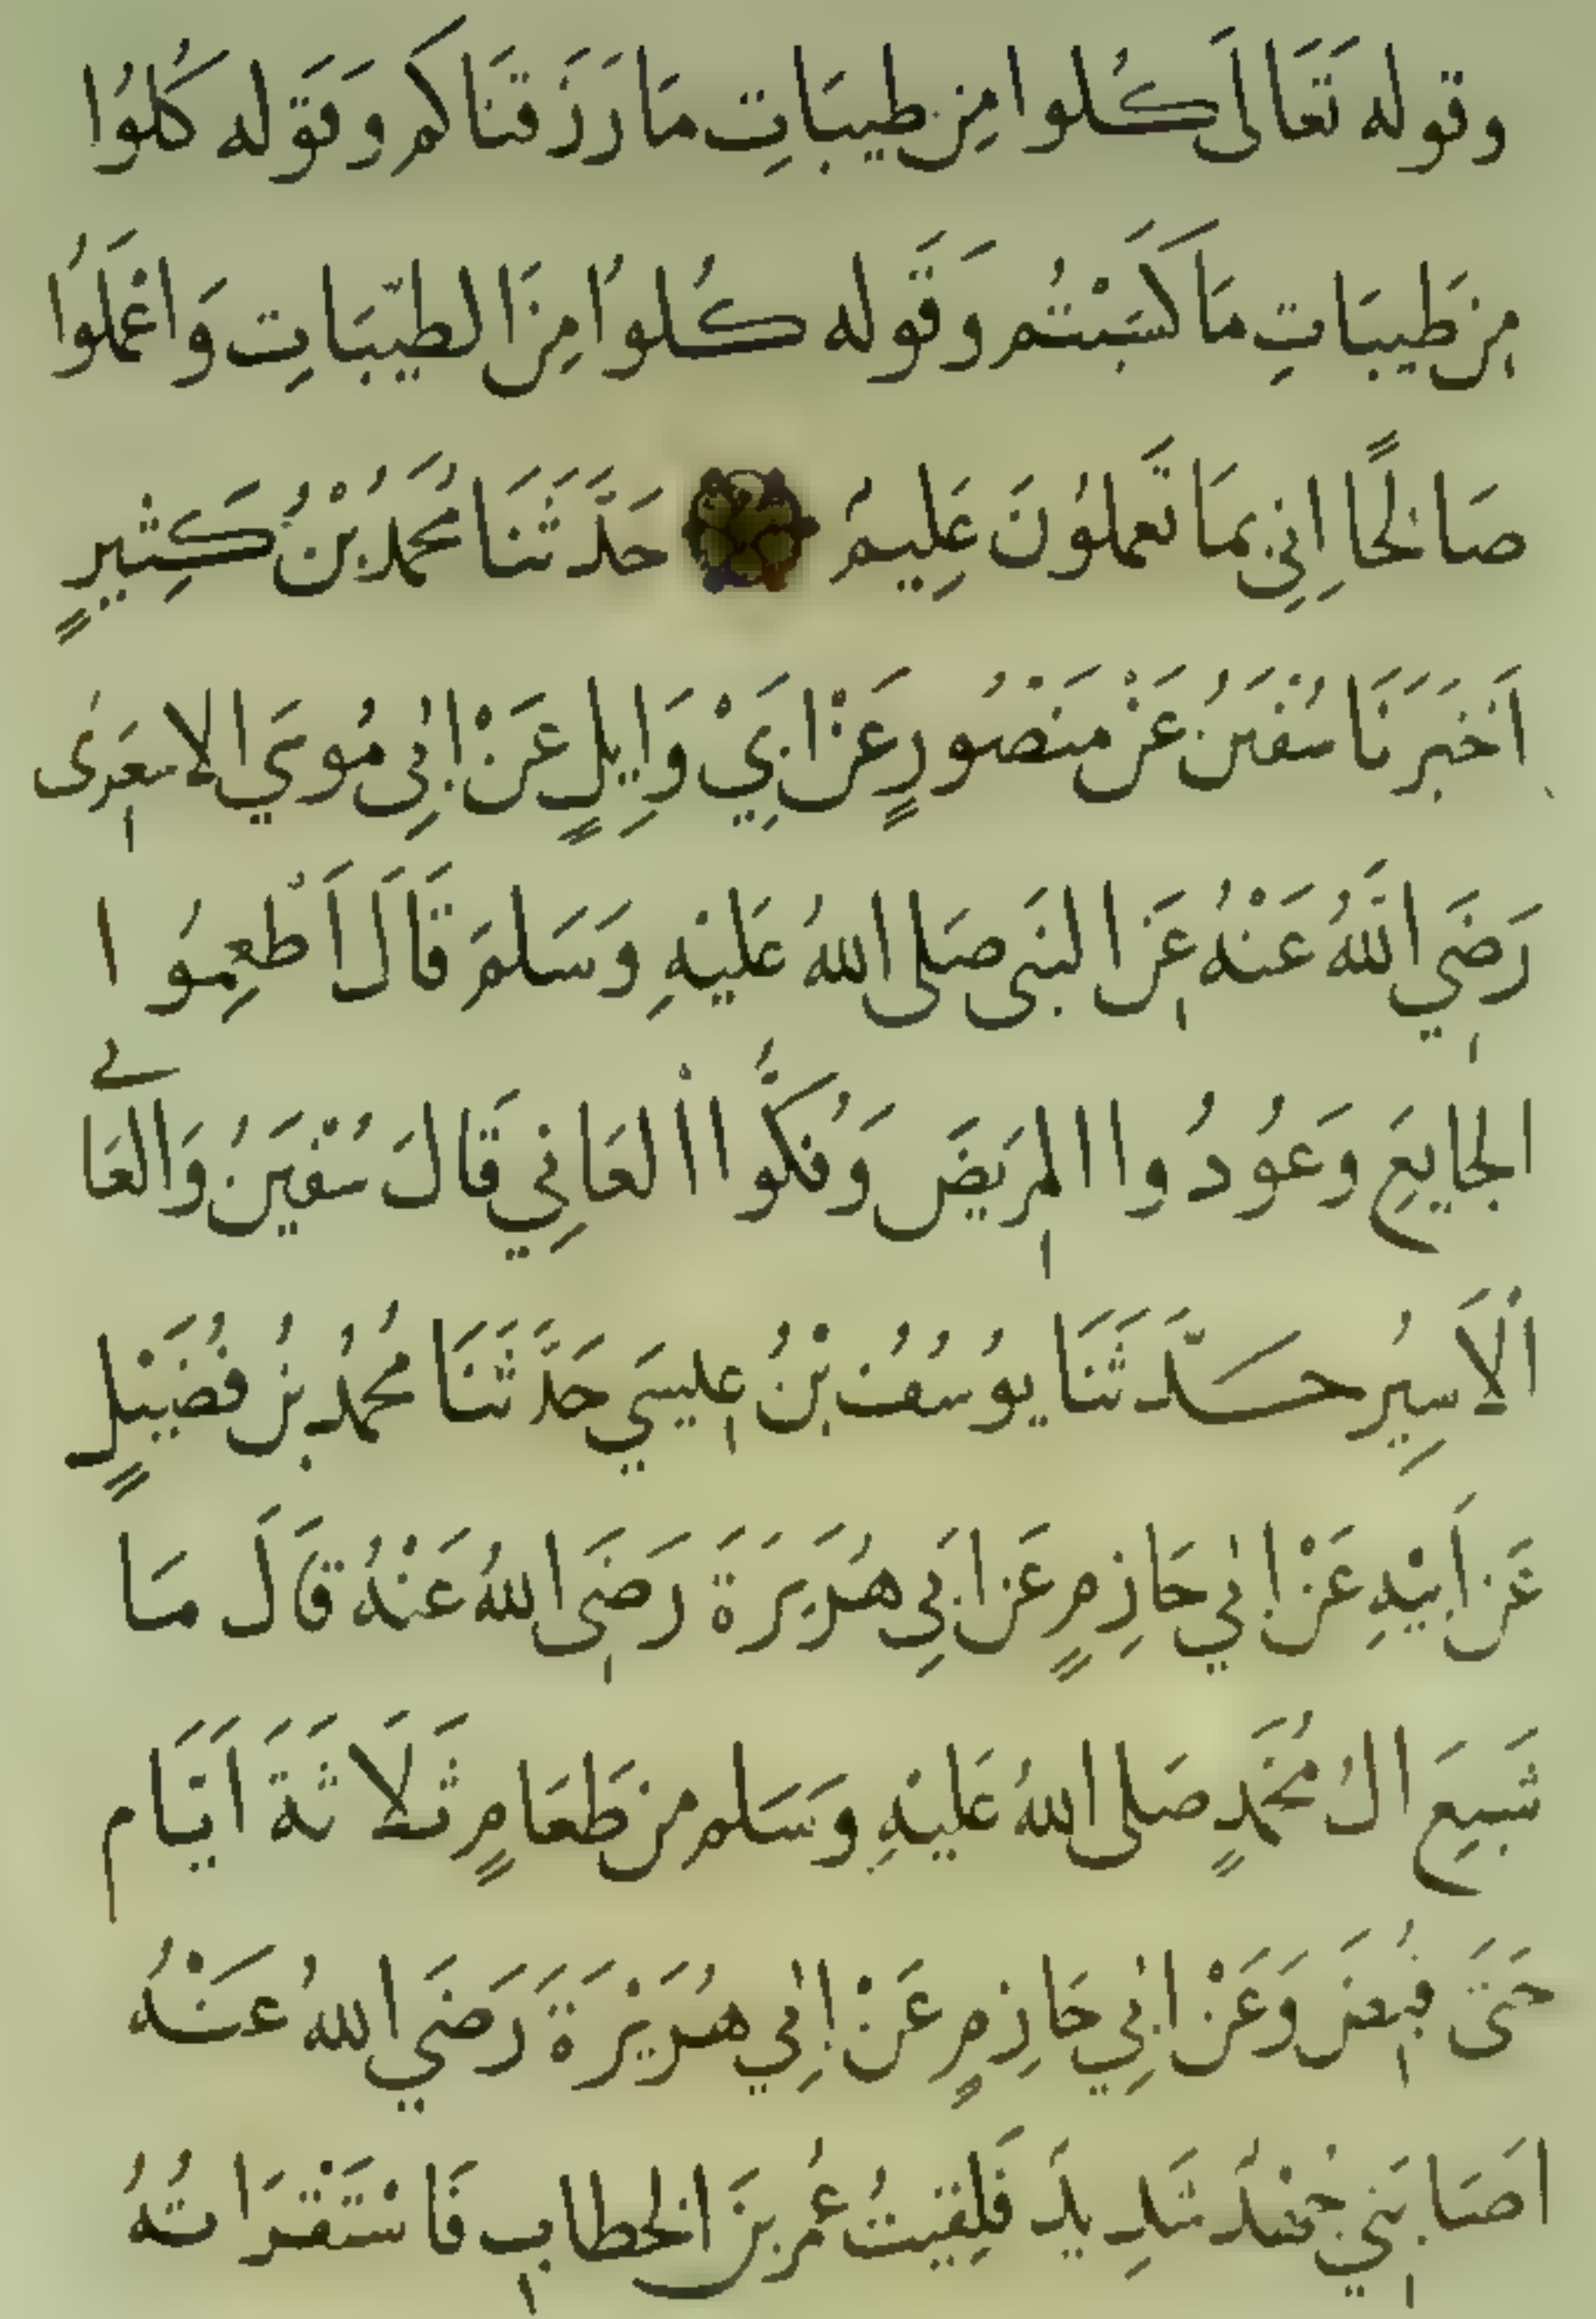 وقوله تَعَالَى كُلوا مِن طيبَاتِ مَا رَزَقنَاكم وَقَوله كُلوُا
مِن طَيبَاتِ مَا كَسَبْتُم وَقَوله كُلوُا مِنَ الطيّبَاتِ وَاعْمَلوُا
صَالحًا اِنِى بمَا تَعملوُنَ عَلِيمُ حَدَّثَنَا مُحَمدُ بْنُ كَثِيرٍ
اَخبَرَنَا سُفْيَنُ عَنْ مَنْصُورٍ عَنْ ابَيْ وَايِلٍ عَنْ ابِى مُوسَي الاسعَرِى
رَضَي اللهُ عَنْهُ عَنِ النبَى صَلى اللهُ عَليْهِ وَسَلمَ قَالَ اَطْعِمُوا
الجَايعَ وَعُودُوا المرَيضَ وَفُكُّوا الْعَانِي قَالَ سُفْيَنُ وَالعَانے
الْاَسِيُر حَدَّثنَا يوُسُفُ بْنُ عيسَي حَدَّثَنَا مُحمدُ بنُ فُضَيْلٍ
عَن اَبيْهِ عَنْ ابي حَازِمٍ عَن ابَي هُرَيرَةَ رَضَى اللهُ عَنْهُ قَالَ مَا
شَبِعَ الُ مُحَمَدٍ صَلى اللهُ عَليْهِ وَسَلم من طَعَامٍ ثَلَاثَةَ اَيَّام
حَتَى قُبضَ وَعَنْ ابِي حَازِمٍ عَنْ ابِي هُرَيْرَةَ رَضَي اللهُ عَنْهُ
اصَابَني جُهْدٌ شَدِيدٌ فَلِقيتُ عُمر بنَ الخطاب فَاسْتَقْرَاتُهُ